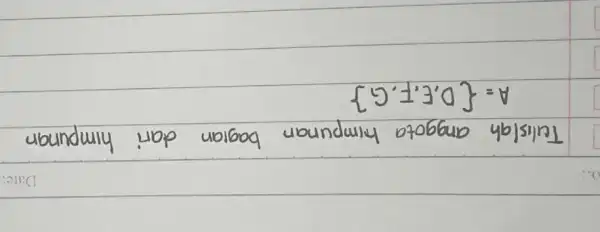 Date:
Tulislah anggota himpunan bagian dari himpunan
A = {D, E, F, G}